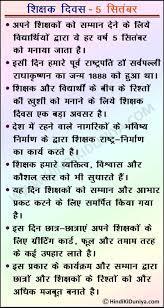 शिक्षक दिवस - 5 सितंबर
अपने शिक्षकों को सम्मान देने के लिये
विद्यार्थियों द्वारा ये हर वर्ष 5 सितंबर
को मनाया जाता है।
इसी दिन हमारे पूर्व राष्ट्रपति डॉ सर्वपल्ली
राधाकृष्णन का जन्म 1888 को हुआ था।
शिक्षक और विद्यार्थी के बीच के रिश्तों
की खुशी को मनाने के लिये शिक्षक
दिवस एक बड़ा अवसर है।
देश में रहने वाले नागरिकों के भविष्य
निर्माण के द्वारा शिक्षक राष्ट्र-निर्माण
का कार्य करते है।
शिक्षक हमारे व्यक्तित्व, विश्वास और
कौशल स्तर को भी सुधारते हैं।
यह दिन शिक्षकों को सम्मान और आभार
प्रकट करने के लिए समर्पित किया गया
है।
इस दिन छात्र-छात्राएं अपने शिक्षकों के
लिए ग्रीटिंग कार्ड, फूल और तमाम तरह
के कई उपहार लाते है।
इस प्रकार के कार्यक्रम और सम्मान द्वारा
छात्रों और शिक्षकों के रिश्तों को और
अधिक मजबूत बनाते है।
© HindiKiDuniya.com